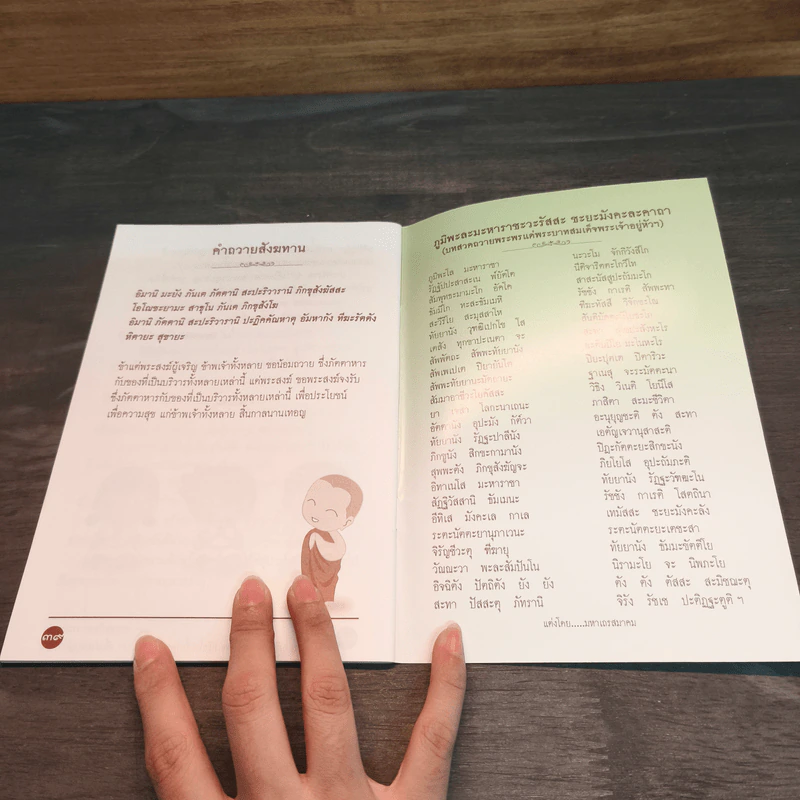 คำถวายสังฆทาน
อิมานิ มะยัง ภันเต ภัตตานิ สะปะริวารานิ ภิกขุสังฆัสสะ
โอโณชะยามะ สาธุโน ภันเต ภิกขุสังโฆ
อิมานิ ภัตตานิ สะปะริวารานิ ปะฏิคคัณหาตุ อัมหากัง ทีฆะรัตตัง
หิตายะ สุขายะ
ข้าแต่พระสงฆ์ผู้เจริญ ข้าพเจ้าทั้งหลาย ขอน้อมถวาย ซึ่งภัตตาหาร
กับของที่เป็นบริวารทั้งหลายเหล่านี้ แด่พระสงฆ์ ขอพระสงฆ์จงรับ
ซึ่งภัตตาหารกับของที่เป็นบริวารทั้งหลายเหล่านี้ เพื่อประโยชน์
เพื่อความสุข แก่ข้าพเจ้าทั้งหลาย สิ้นกาลนานเทอญ
๓๙
ภูมิพะละมะหาราชะวะรัสสะ ชะยะมังคะละคาถา
(บทสวดถวายพระพรแด่พระบาทสมเด็จพระเจ้าอยู่หัวฯ)
ภูมิพะโล มะหาราชา
นะวะโม จักกิวังสิโก
รัฏฐัปปะสาสะเน
นีติจาริตตะโกวิโท
สัมพุทธะมามะโก
สาสะนัสสูปะถัมมะโก
ขัมมิโก ทะสะธัมเมหิ
รัชชัง กาเรติ สัพพะทา
ทัยยานัง วุฑฒิเปกโข
เตสัง ทุกขาปะเนตา จะ
สัพพัตถะ สัพพะทัยยานัง
ปิยะรูเต ปิตาริวะ
ฐาเนสุ จะระมัตตะนา
วิธิง วิเนติ โยนิโส
ยา โลกะนาเถนะ
ภาสิตา สะมะชีวิตา
อัตตานัง อุปะมัง กัต๎วา
อะนุบุญชะติ ตัง สะทา
ทัยยานัง รัฏฐะปาลีนัง
เอตัญเจวานุสาสะติ
ภิกขูนัง สิกขะกามานัง
ปิฏะกัตตะยะสิกขะนัง
สุพพะตัง ภิกขุสังฆัญจะ
ภิยโยโส อุปะถัมภะติ
อิทาเนโส มะหาราชา
ทัยยานัง รัฏฐะวัฑฒะโน
สัฏฐิวัสสานิ ธัมเมนะ
รัชชัง กาเรติ โสตถินา
อีทิเส มังคะเล กาเล
เทมัสสะ ชะยะมังคะลัง
ระตะนัตตะยานุภาเวนะ
ระตะนัตตะยะเตชะสา
จิรัญชีวะตุ ทีฆายุ
ทัยยานัง ธัมมะขัตติโย
วัณณะวา พะละสัมปันโน
นิรามะโย จะ นิพภะโย
อิจฉิตัง ปัตถิตัง ยัง ยัง
ตัง ตัง ตัสสะ สะมิชฌะตุ
สะทา ปัสสะตุ ภัทรานิ
จิรัง รัชเช ปะติฏฐะตูติ ฯ
แต่งโดย.....มหาเถรสมาคม